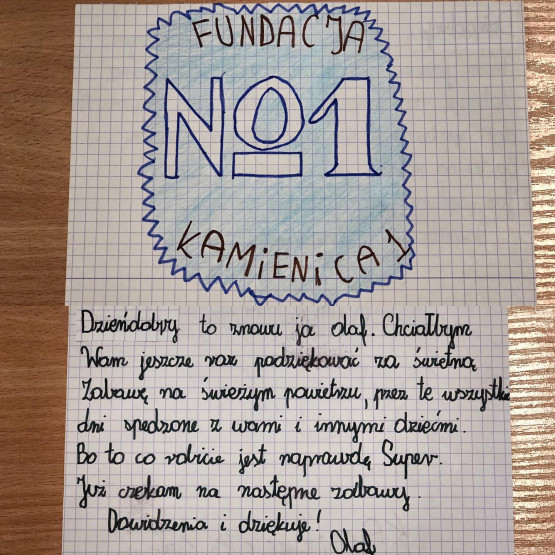 FUNDACJA
No1
KAMIENICA 1
Dzieńdobry to znowu ja olaf. Chciałbym
Wam jeszcze raz podziękować za świetną
Zabawę na świeżym powietrzu, przez te wszystkie
dni spedzone z wami i innymi dziećmi.
Bo to co robicie jest naprawdę Super.
Już czekam na następne zabawy.
Dowidzenia i dziękuje!
Olaf